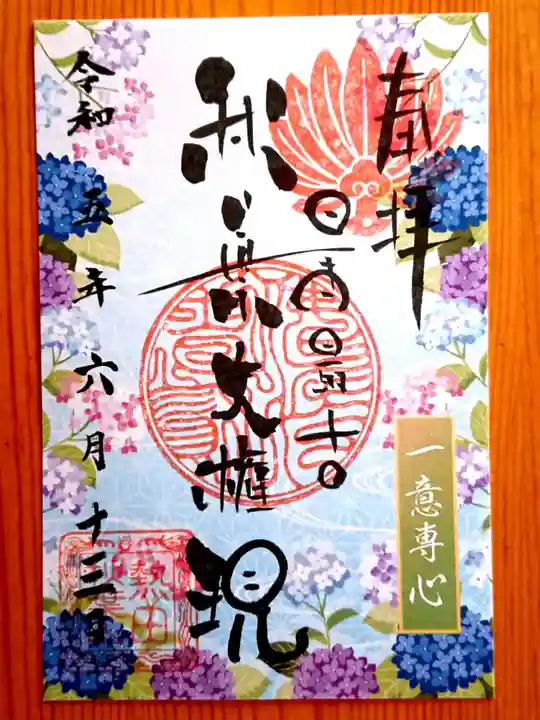 奉拝
一意専心
日本最古
秋葉大権現
令和五年六月十三日
熱田